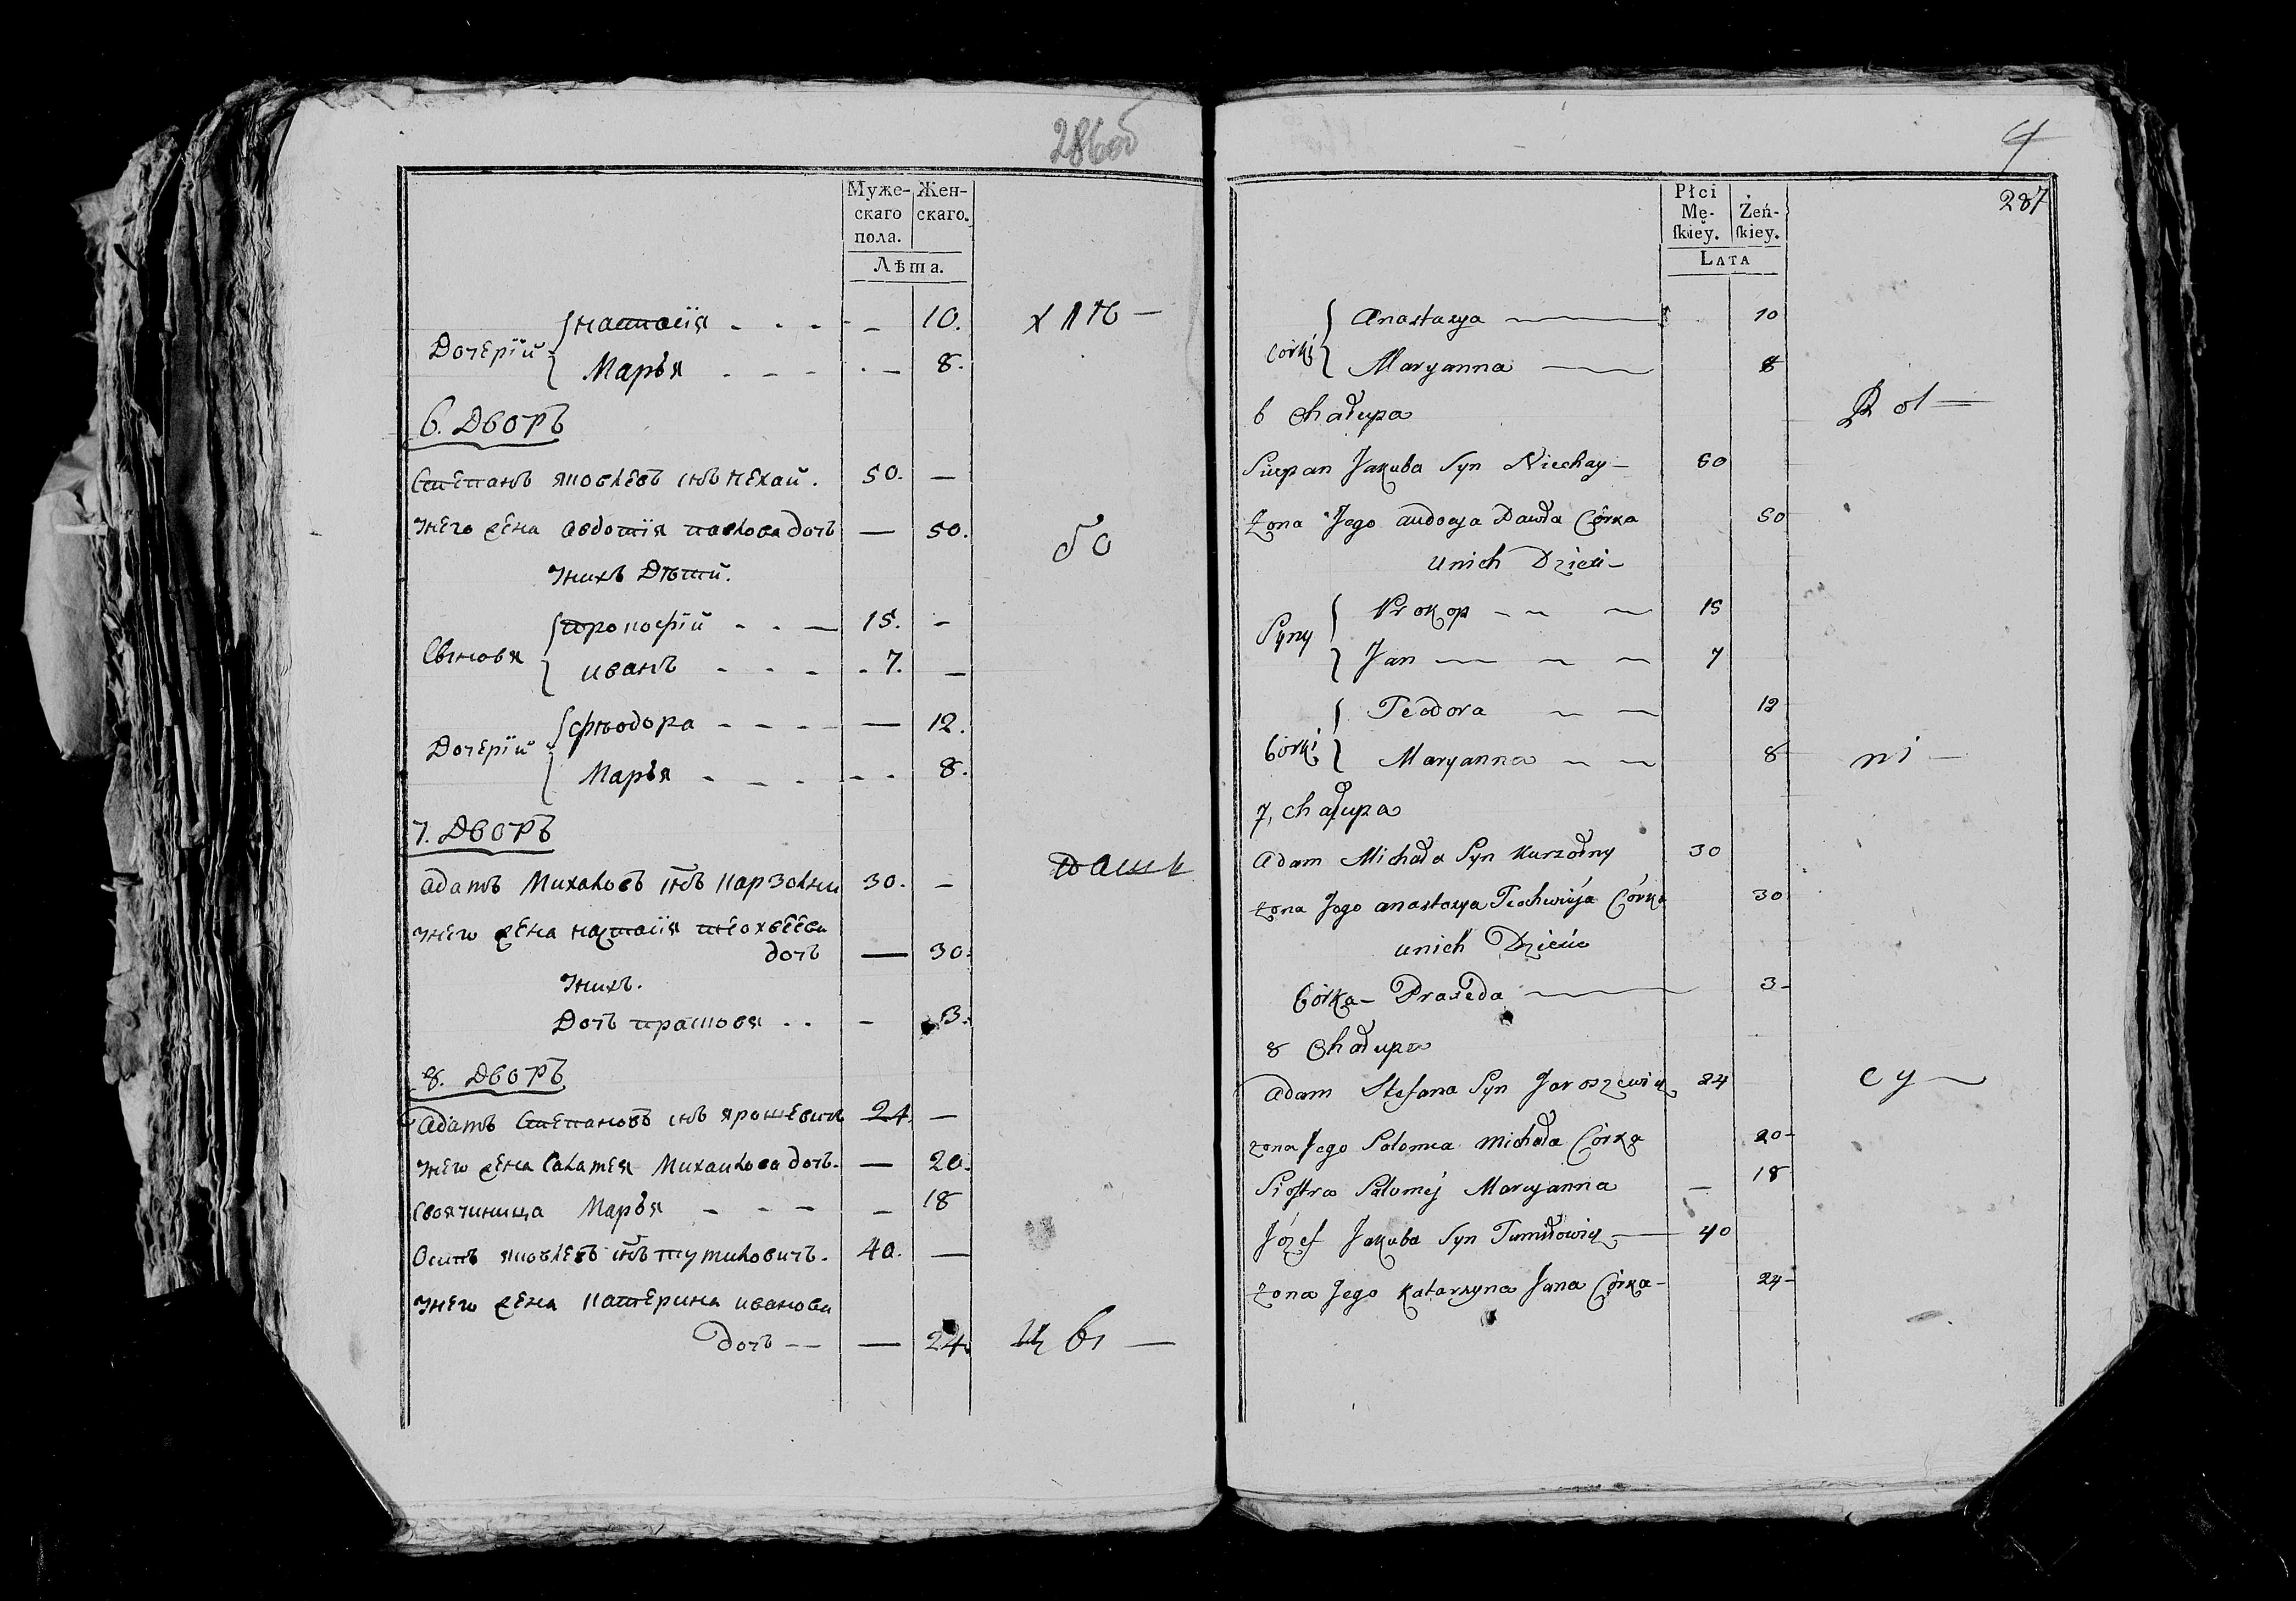 286об
Муже-
скаго
пола.
Жен-
скаго.
Лѣта.
Дочерїи
настасїя 10.
Марья 8.
хлѣ
6. Дворъ
Степанъ яковлевъ снъ нехай. 50. —
унего жена авдотїя павлова дочь — 50.
бо
унихъ Дѣти.
Сыновя
прокофїй 15. —
иванъ 7. —
Дочерїи
фѣодора — 12.
Марья 8.
7. Дворъ
адамъ Михаловъ снъ карзолни 30. —
унего жена настасїя
дочь — 30.
унихъ.
Дочь прасковя — 3.
8. Дворъ
Адамъ Степановъ снъ ярошевичъ 24 —
унего жена Саламея Михайлова дочь — 20.
Своячиница Марья — 18
Осипъ яковлевъ снъ тумиловичъ. 40. —
унего жена катерина иванова
дочь — 24.
4
287
Płci
Mę-
ſkiey.
Żeń-
ſkiey.
Lata
Córki
Anastasya 10
Maryanna 8
6 Chałupa
Sciepan Jakuba Syn Niechay 50
Żona Jego audocya Dawła Córka 50
unich Dzieci
Syny
Prokop 15
Jan 7
Córki
Teodora 12
Maryanna 8
ni
7, Chałupa
Adam Michała Syn Kurzołny 30
żona Jego anastasya Córka 30
unich Dziecie
Córka Praxeda 3
8 Chałupa
Adam Stefana Syn Jaroszewicz 24
cy
żona Jego Salomea Michała Córka 20
Siostra Salomej Maryanna — 18
Józef Jakuba Syn Tumiłowicz 40
żona Jego Katarzyna Jana Córka 24